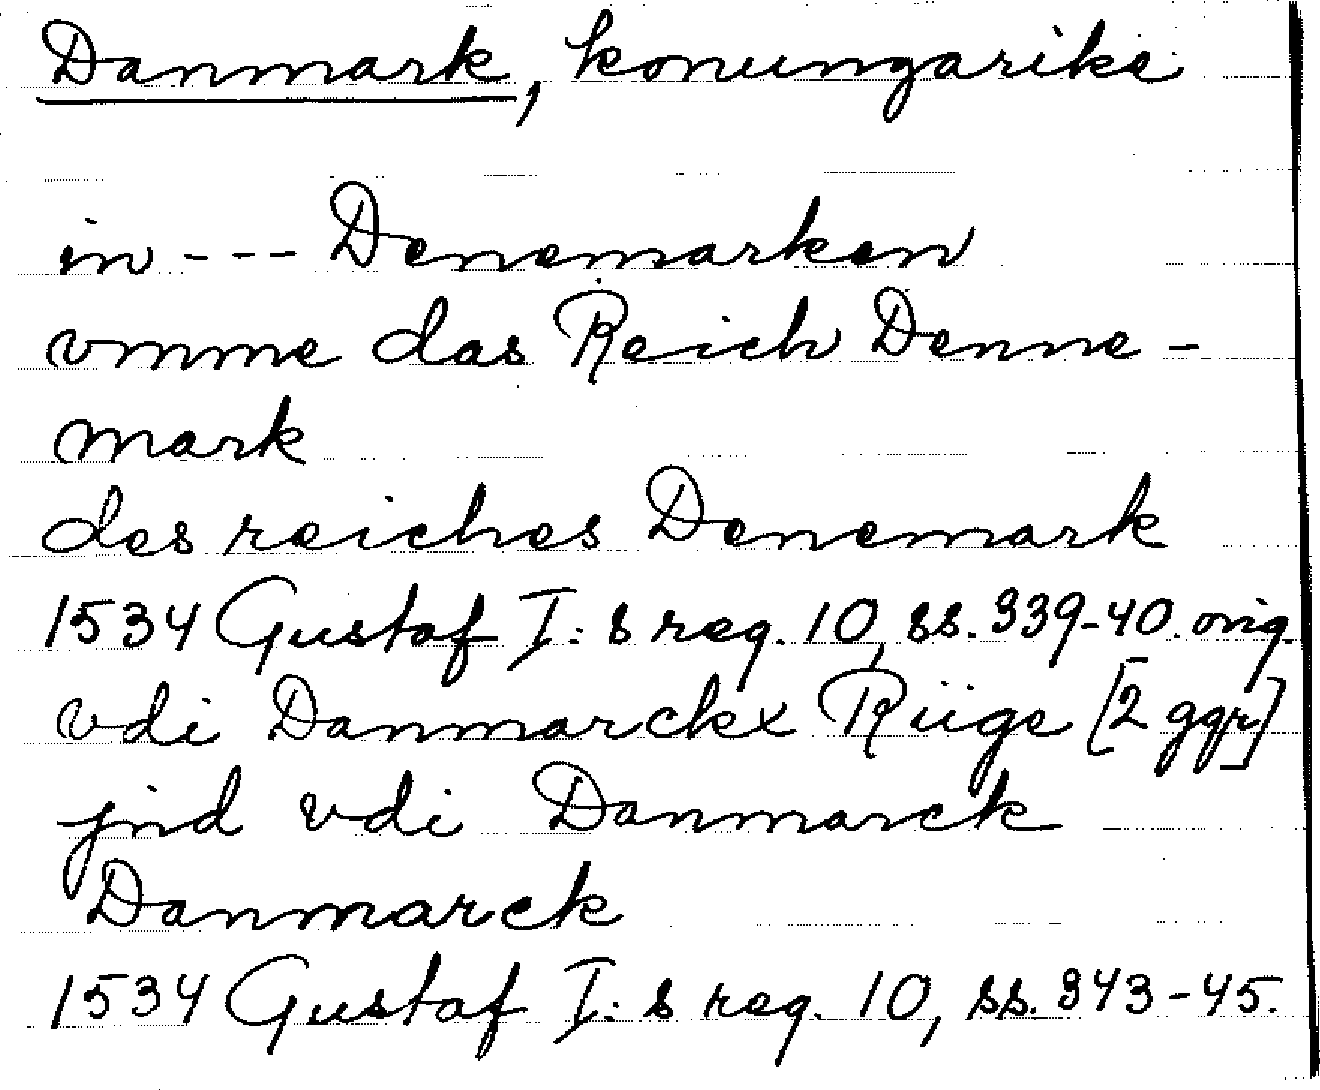 Danmark, konungarike
in --- Denemarken
vmme das Reich Denne-
mark
des reiches Denemark
1534 Gustaf I:s reg. 10, ss. 339-40. orig.
vdi Danmarckx Rüge [2 ggr]
jnd vdi Danmarck
Danmarck
1534 Gustaf I:s reg. 10, ss. 343-45.